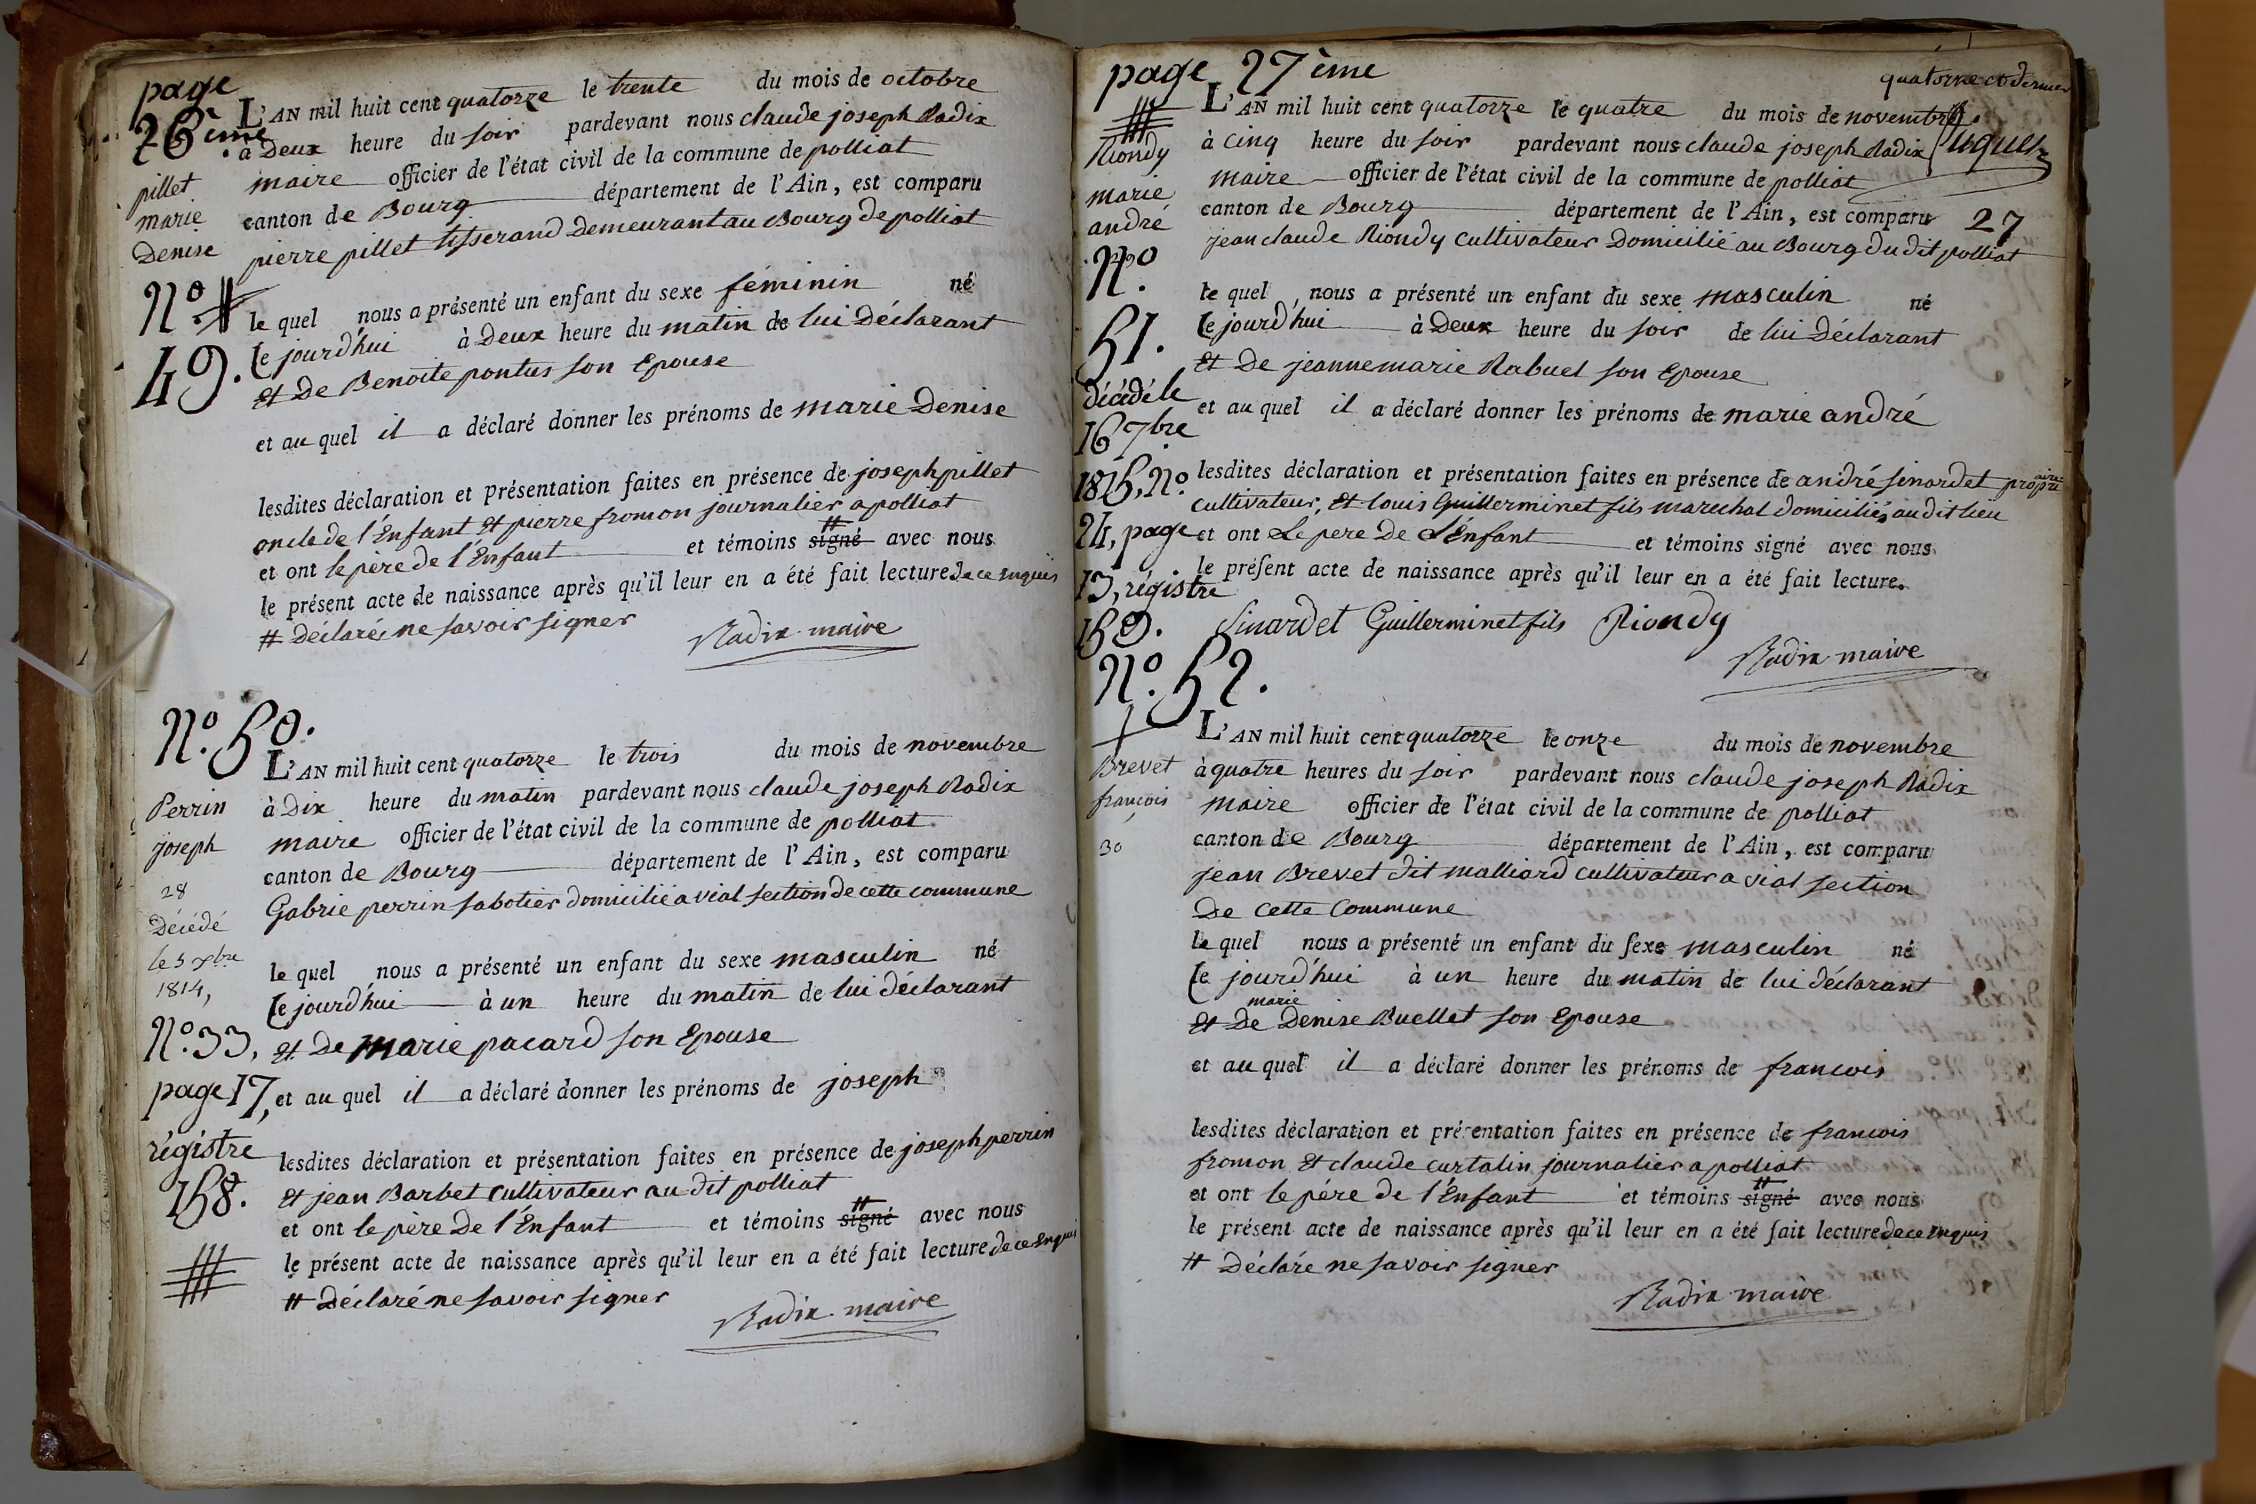 page
26ème
L'AN mil huit cent quatorze le trente du mois de octobre
à Deux heure du soir pardevant nous claude joseph Radix
maire officier de l'état civil de la commune de polliat
canton de Bourg département de l'Ain, est comparu
pierre pillet tisserand Demeurant au Bourg de polliat
pillet
marie
Denise
N.º
49.
le quel nous a présenté un enfant du sexe féminin né
le jourd'hui à Deux heure du matin de lui Déclarant
et De Benoite pontus son Epouse
et au quel il a déclaré donner les prénoms de marie Denise
lesdites déclaration et présentation faites en présence de joseph pillet
oncle de l'Enfant et pierre fromon journalier a polliat
et ont le père de l'Enfant et témoins signé # avec nous
le présent acte de naissance après qu'il leur en a été fait lecture de ce Enquis
# Déclarés ne savoir signer
Radix maire
N.º 50.
L'AN mil huit cent quatorze le trois du mois de novembre
à Dix heure du matin pardevant nous claude joseph Radix
maire officier de l'état civil de la commune de polliat
canton de Bourg département de l'Ain, est comparu
Gabrie perrin sabotier domicilié a vial section de cette commune
Perrin
joseph
28
Décédé
le 5 xbre
1814,
N.º 33,
page 17,
régistre
158.
le quel nous a présenté un enfant du sexe masculin né
le jourd'hui à un heure du matin de lui déclarant
et De marie pacard son Epouse
et au quel il a déclaré donner les prénoms de joseph
lesdites déclaration et présentation faites en présence de joseph perrin
et jean Barbet cultivateur au dit polliat
et ont le père De l'Enfant et témoins signé # avec nous
le présent acte de naissance après qu'il leur en a été fait lecture de ce Enquis
# Déclaré ne savoir signer
Radix maire
page 27ème
quatorze et dernier
L'AN mil huit cent quatorze le quatre du mois de novembre.
à cinq heure du soir pardevant nous claude joseph Radix
maire officier de l'état civil de la commune de polliat
canton de Bourg département de l'Ain, est comparu
27
jean claude Riondy cultivateur Domicilié au Bourg du dit polliat
Riondy
marie
andré
N.º
51.
décédé le
16 7bre
1815, Nº.
24, page
13, régistre
159.
le quel nous a présenté un enfant du sexe masculin né
le jourd'hui à Deux heure du soir de lui Déclarant
et De jeanne marie Rabuel son Epouse
et au quel il a déclaré donner les prénoms de marie andré
lesdites déclaration et présentation faites en présence de andré sinardet propriaire
cultivateur, et louis Guillerminet fils marechal domiciliés au dit lieu
et ont Le pere De L'Enfant et témoins signé avec nous
le présent acte de naissance après qu'il leur en a été fait lecture.
Sinardet Guillerminet fils Riondy
Radix maire
N.º 52.
L'AN mil huit cent quatorze le onze du mois de novembre
à quatre heures du soir pardevant nous claude joseph Radix
maire officier de l'état civil de la commune de polliat
canton de Bourg département de l'Ain, est comparu
jean Brevet dit malliard cultivateur a vial section
De cette Commune
Brevet
françois
30
le quel nous a présenté un enfant du sexe masculin né
le jourd'hui à un heure du matin de lui déclarant
marie
et De Denise Buellet son Epouse
et au quel il a déclaré donner les prénoms de francois
lesdites déclaration et présentation faites en présence de francois
fromon et claude curtalin journalier a polliat
et ont le pére de l'Enfant et témoins signé # avec nous
le présent acte de naissance après qu'il leur en a été fait lecture de ce Enquis
# Déclaré ne savoir signer
Radix maire